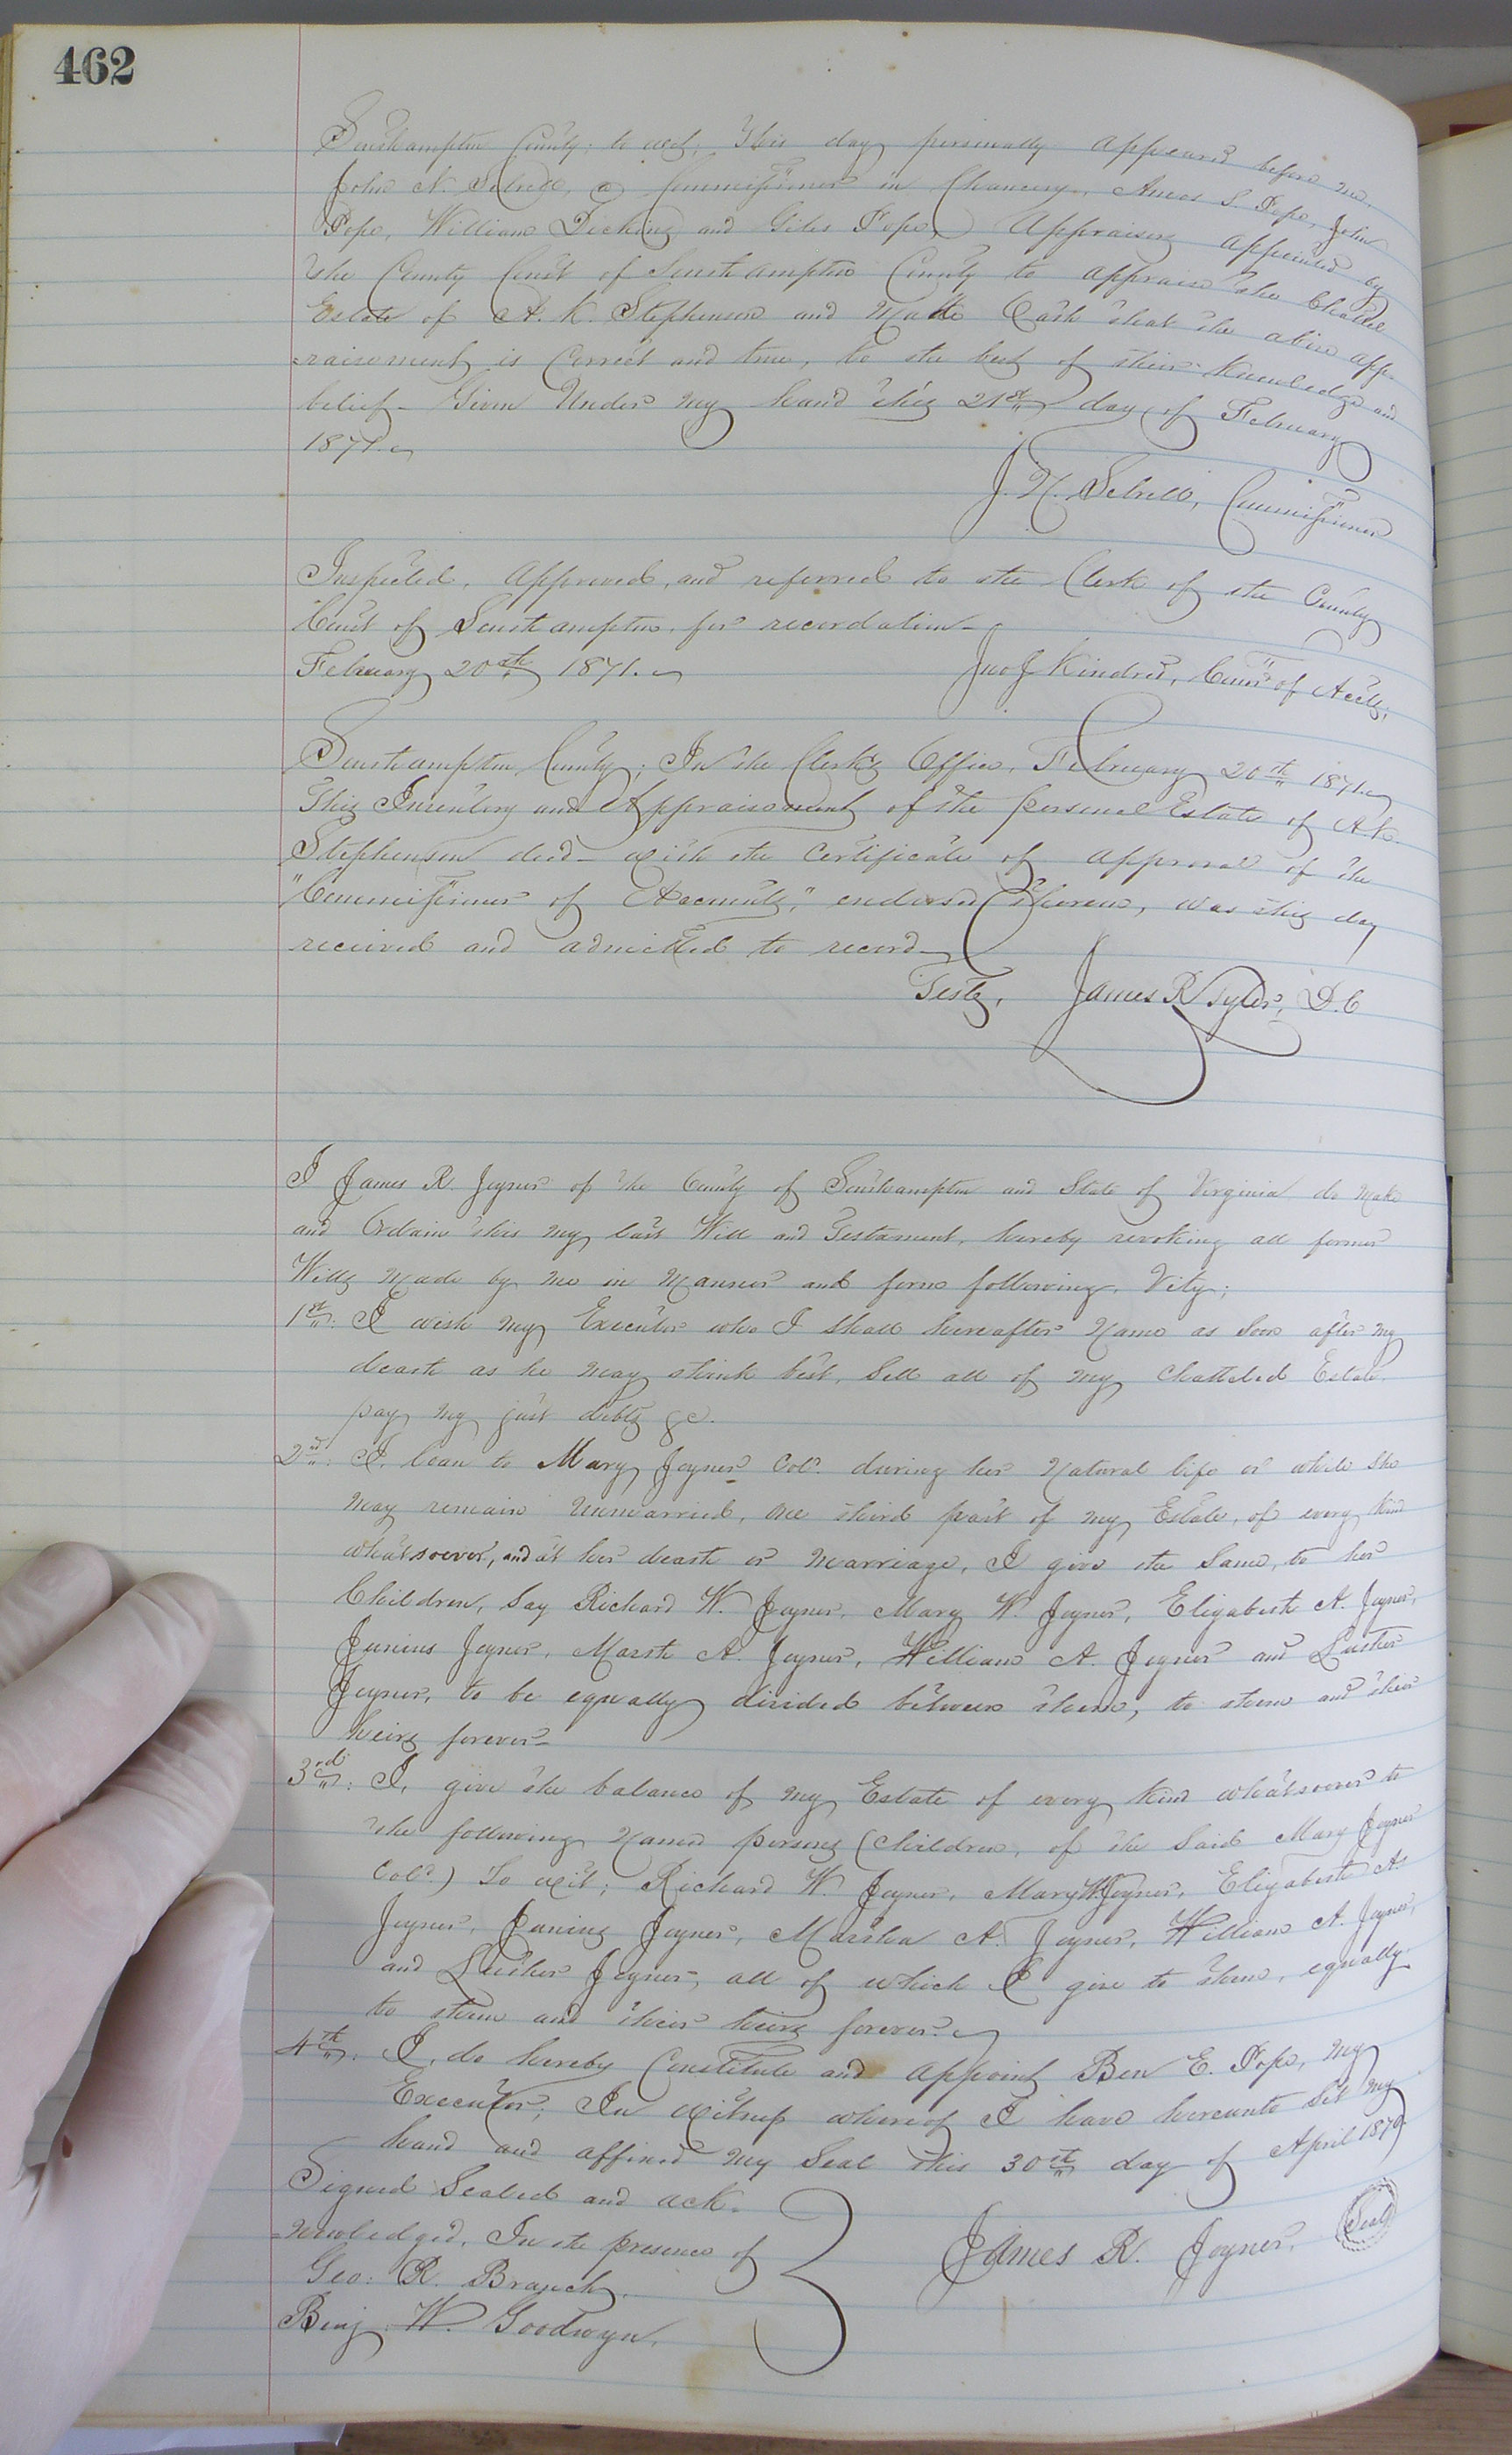 462
Southampton County: to wit: This day personally appeared before me,
John N. Sebrell, a Commissioner in Chancery, Amos S. Pope, John
Pope, William Dickins and Giles Pope, Appraisers appointed by
the County Court of Southampton County to appraise the Chattel
Estate of A. K. Stephenson and made Oath that the above app-
-raisement is Correct and true, to the best of their Knowledge and
belief - Given Under my hand this 21st day of February
1871.
J. N. Sebrell, Commissioner
Inspected, Approved, and referred to the Clerk of the County
Court of Southampton for recordation -
February 20th 1871.
Jno J Kindred, Comr of Accts;
Southampton County; In the Clerk's Office, February 20th 1871.
This Inventory and Appraisement of the personal Estate of A.K.
Stephenson decd - with the Certificate of approval of the
"Commissioner of Accounts," endorsed thereon, was this day
received and admitted to record -
Teste, James R Tyler, D.C
I James R. Joyner of the County of Southampton and State of Virginia do make
and Ordain this my last Will and Testament, hereby revoking all former
Wills made by me in manner and form following. Vity;
1st: I wish my Executor who I shall hereafter Name as soon after my
death as he may think best, Sell all of my Chatteled Estate,
pay my just debts &c.
2nd: I, loan to Mary Joyner Cold. during her Natural life or while she
may remain Unmarried, one third part of my Estate, of every kind
whatsoever, and at her death or marriage, I give the Same, to her
Children, Say Richard W. Joyner, Mary W. Joyner, Elizabeth A. Joyner,
Junius Joyner, Marth A. Joyner, William A. Joyner and Luther
Joyner, to be equally divided between them, to them and their
heirs forever -
3rd: I, give the balance of my Estate of every kind whatsoever to
the following Named persons (Children, of the Said Mary Joyner
Cold.) To wit; Richard W. Joyner, Mary W. Joyner, Elizabeth A.
Joyner, Junius Joyner, Martha A. Joyner, William A. Joyner,
and Luther Joyner, all of which I give to them, equally
to them and their heirs forever.
4th: I, do hereby Constitute and appoint Ben E. Pope, my
Executor; In witness whereof I have hereunto Set my
hand and affixed my Seal this 30th day of April 1870
Signed Sealed and ack-
-nowledged, In the presence of
James R. Joyner. Seal
Geo: R. Branch.
Benj. W. Goodwyn.